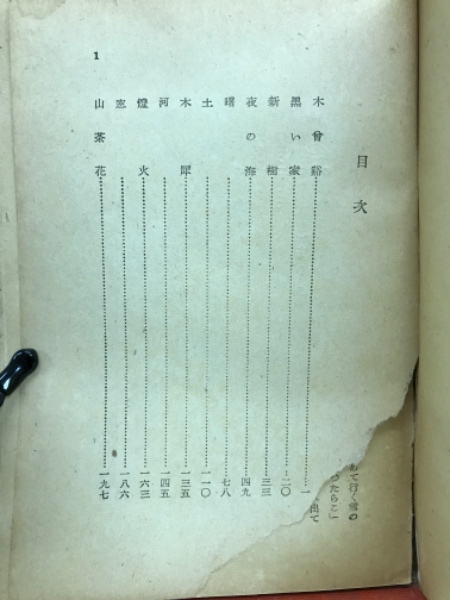 目次
木曾谿……一
黒い家……二〇
新樹……三三
夜の海……四九
曙……七八
土……一一〇
木犀……一三五
河……一四五
燈火……一六三
窓……一八六
山茶花……一九七
1
て行く雪の
つたらこ」
出て